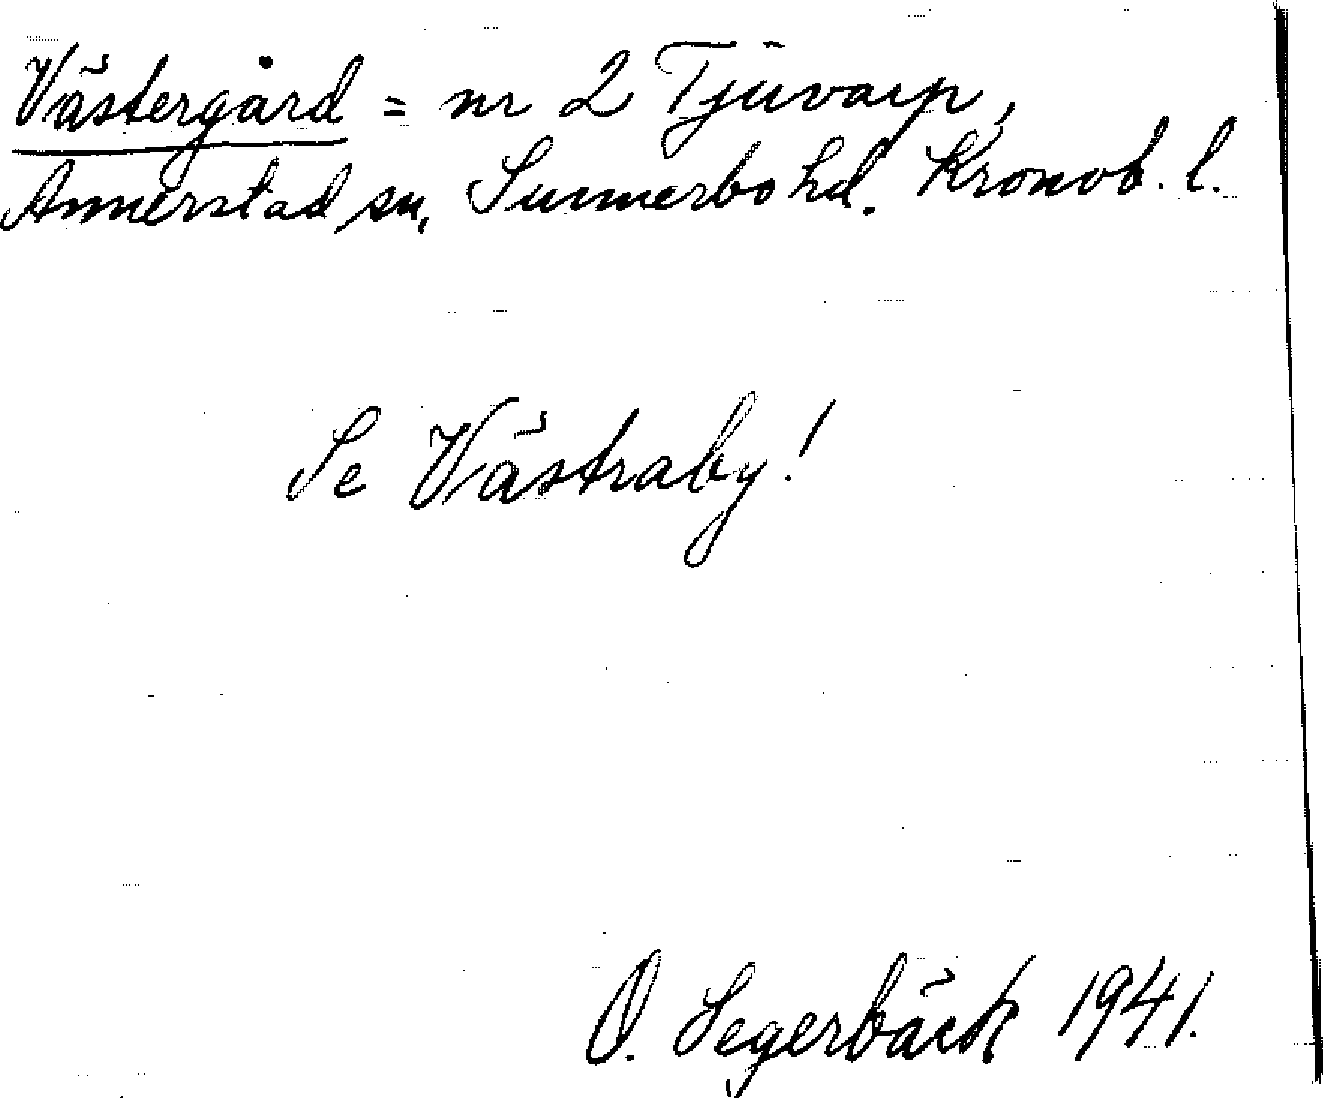 Västergård = nr 2 Tjuvarp,
Annerstad sn, Sunnerbo hd. Kronob. l.
Se Västraby!
O. Segerbäck 1941.